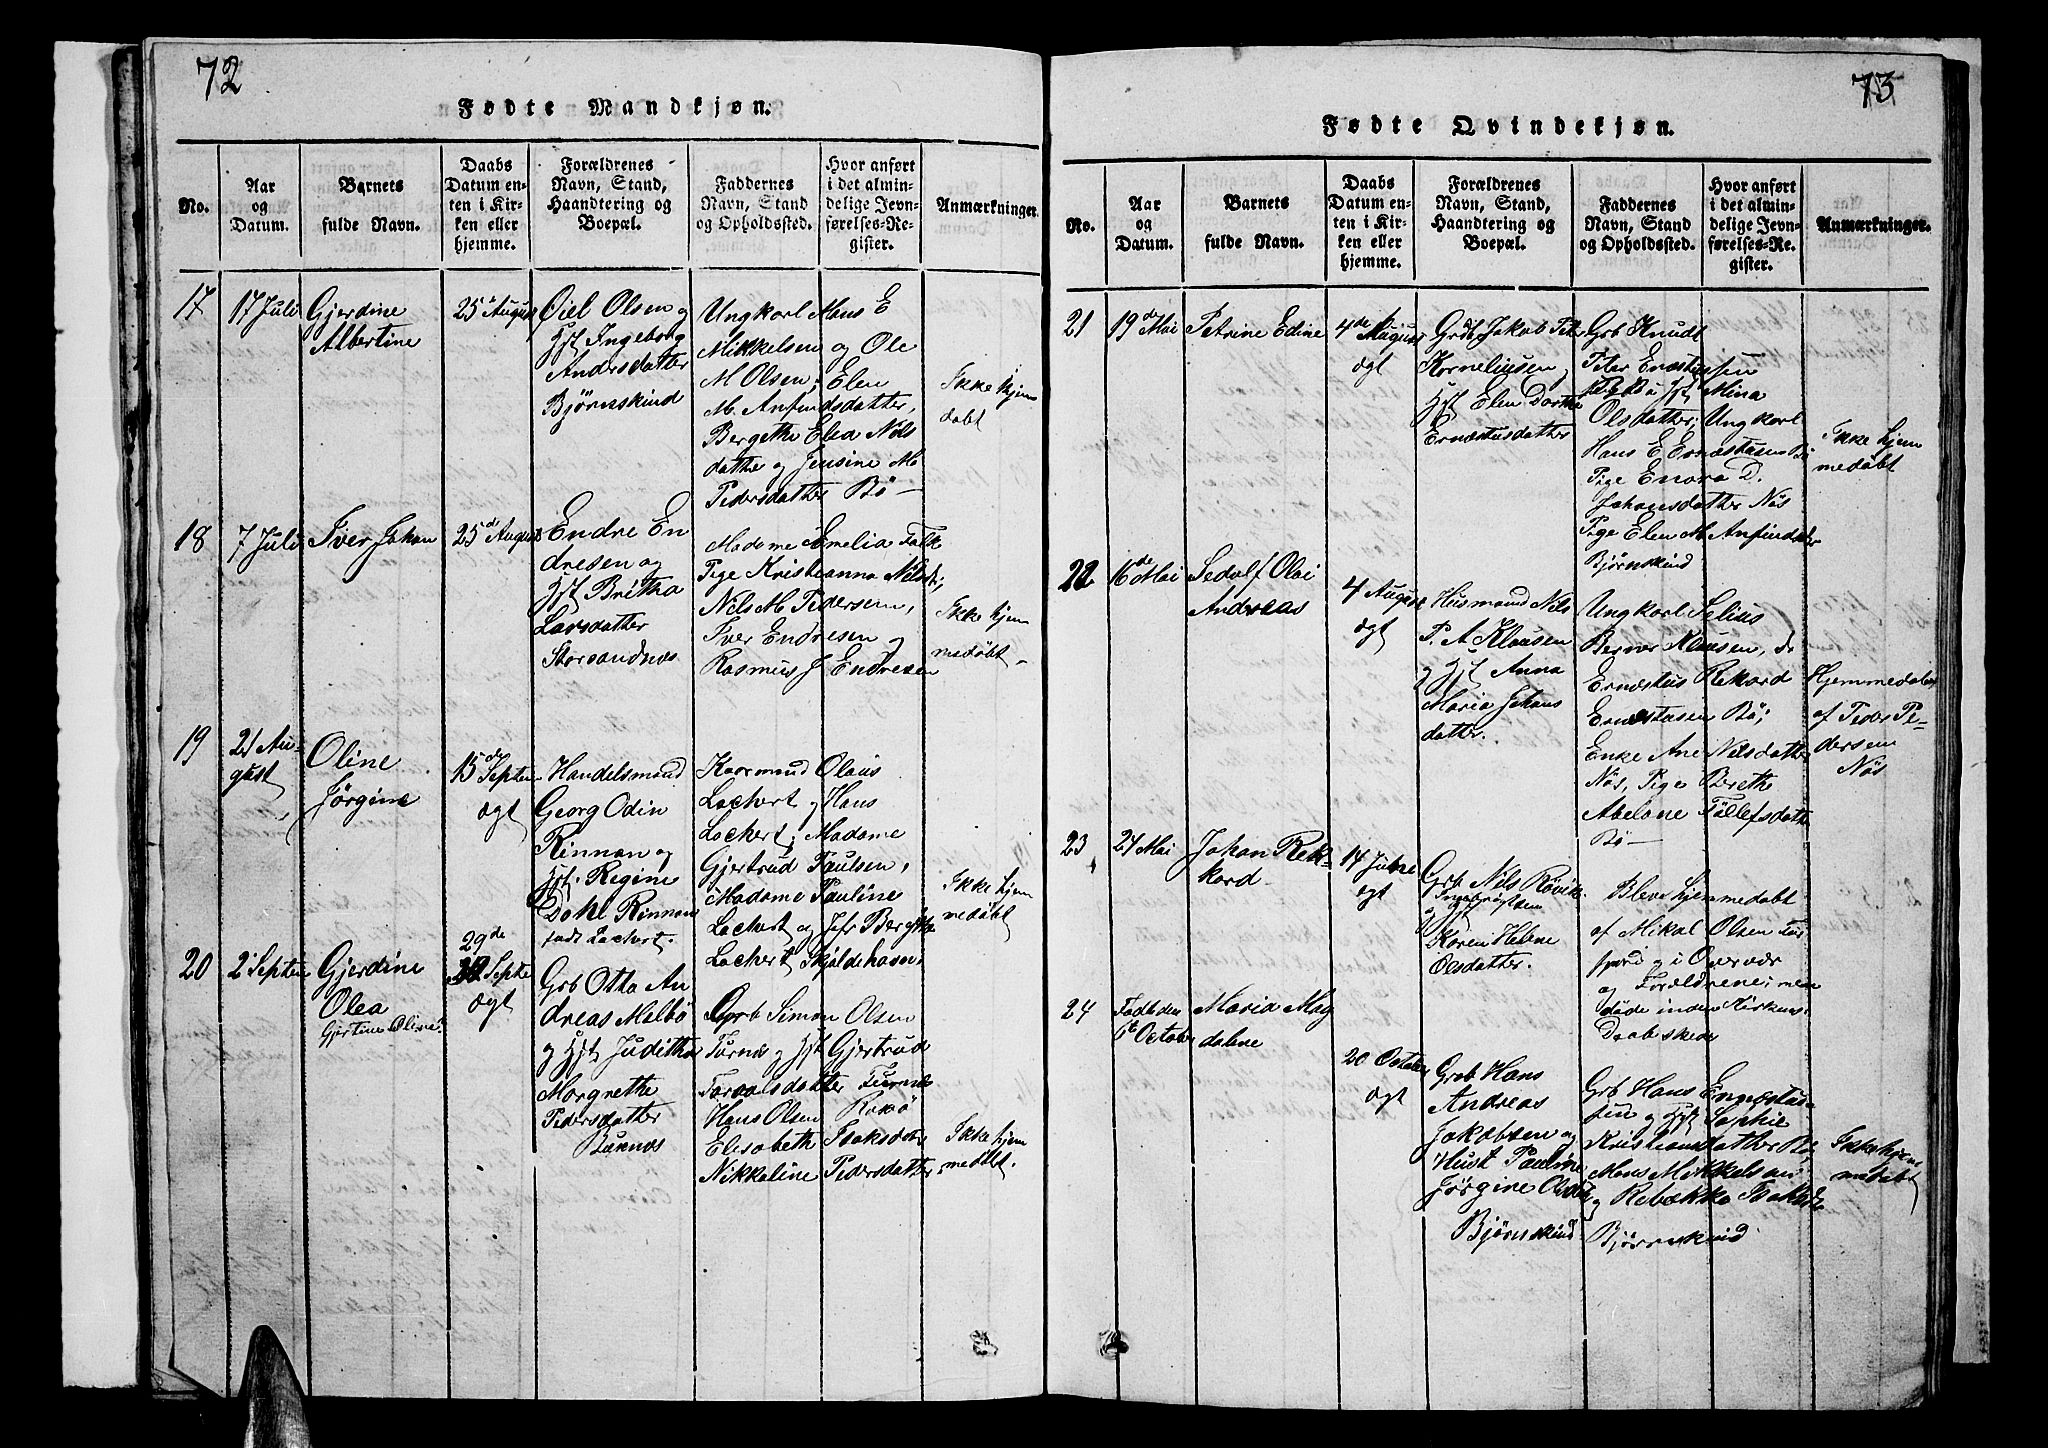 72
Fødte Mandkjøn.
No.
Aar
og
Datum.
Barnets
fulde Navn.
Daabs
Datum en-
ten i Kir-
ken eller
hjemme.
Forældrenes
Navn, Stand,
Haandtering og
Boepæl.
Faddernes
Navn, Stand
og Opholdssted.
Hvor anført
i det almin-
delige Jevn-
førelses-Re-
gister.
Anmærkninger.
17
17 Juli
Gjerdine
Albertine
25 August
Øiel Olsen og
Hst Ingeborg
Andersdatter
Bjørnskind
Ungkarl Hans E
Mikkelsen og Ole
M Olsen; Elen
M. Anfindsdatter,
Bergethe Elea Nils
datter og Jensine M
Pedersdatter Bö —
Ikke hjem
døbt
18
7 Juli
Iver Johan
25de August
Endre En
dresen og
Hst Britha
Larsdatter
Storsandnæs
Madame Amelia Falk
Pige Kristianna Nilsd;
Nils M Pedersen,
Iver Endresen og
Rasmus J Endresen
Ikke hjem
medøbt
19
21 Au-
gust
Oline
Jørgine
15de Septen
ægt
Handelsmand
Georg Odin
Rinnan og
Hst. Regine
Dahl Rinnan
født Lockert.
Kaarmand Olaus
Lockert og Hans
Lockert, Madame
Gjertrud Paulsen,
Madame Pauline
Lockert og Jfr Bergithe
Lockert Skjoldehavn
Ikke hjem
medøbt
20
2 Septen
Gjerdine
Olea
Gjertine Oline
29de
Septe
ægt
Grb Otto An
dreas Melbö
og Hst Juditha
Margrethe
Pedersdatter
Buknæs
Grb Simon Olsen
Turnæs og Hst Gjertrud
Torvalsdatter Turnæs
Hans Olsen
Elisabeth Isaksdatter
Nikkoline Pedersdatter
Ikke hjem
medøbt.
73
Fødte Qvindekjøn.
No.
Aar
og
Datum.
Barnets
fulde Navn.
Daabs
Datum en-
ten i Kir-
ken eller
hjemme.
Forældrenes
Navn, Stand,
Haandtering og
Boepæl.
Faddernes
Navn, Stand
og Opholdssted.
Hvor anført
i det almin-
delige Jevn-
førelses-Re-
gister.
Anmærkninger.
21
19de Mai
Petrine Edine
4de August
ægt
Grdb Jakob Peter
Korneliusen
Hst Elen Dorthe
Ernæstusdatter
Grb Knudt
Peter Ernæstussen
Hst Mina
Olsdatter; Ungkarl
Hans E Ernæstusen Bö
Pige Enora D.
Johansdatter Nös
Pige Elen M Anfindsdatter
Bjørnskind
Ikke hjem
medøbt
22
16de Mai
Sedolf Olai
Andreas
4 August
ægt
Husmand Nils
P. A Klausen
og Hst Anna
Maria Johans
datter.
Ungkarl Selius
Berner Klausen, do
Ernæstus Rekord
Ernæstusen Bö;
Enke Ane Nilsdatter
Nös, Pige Berethe
Abelone Tollefsdatter
Bö —
Hjemmedøbt
af Peder Pe-
dersen
Nös
23
24 Mai
Johan Rek-
kord
14 Juli
ægt
Grb Nils Røvik
Ingebrigtsen
og Hst
Karen Helene
Olsdatter.
Blev hjemmedøbt
af Mikal Olsen
fjord og i Overvær
og Forældrene; men
døde inden Kirkens
Daab skede
24
Født den
6te October
Maria Mag
dalene
20 October
ægt
Grb Hans
Andreas
Jakobsen og
Hust Pauline
Jørgine Olsdatter
Bjørnskind
Grb Hans Ernæstus-
sen og Hst Sophie
Kristiansdatter Bö
Hans Mikkelsen
og Rebækka Isaksd
Bjørnskind
Ikke hjem
medøbt